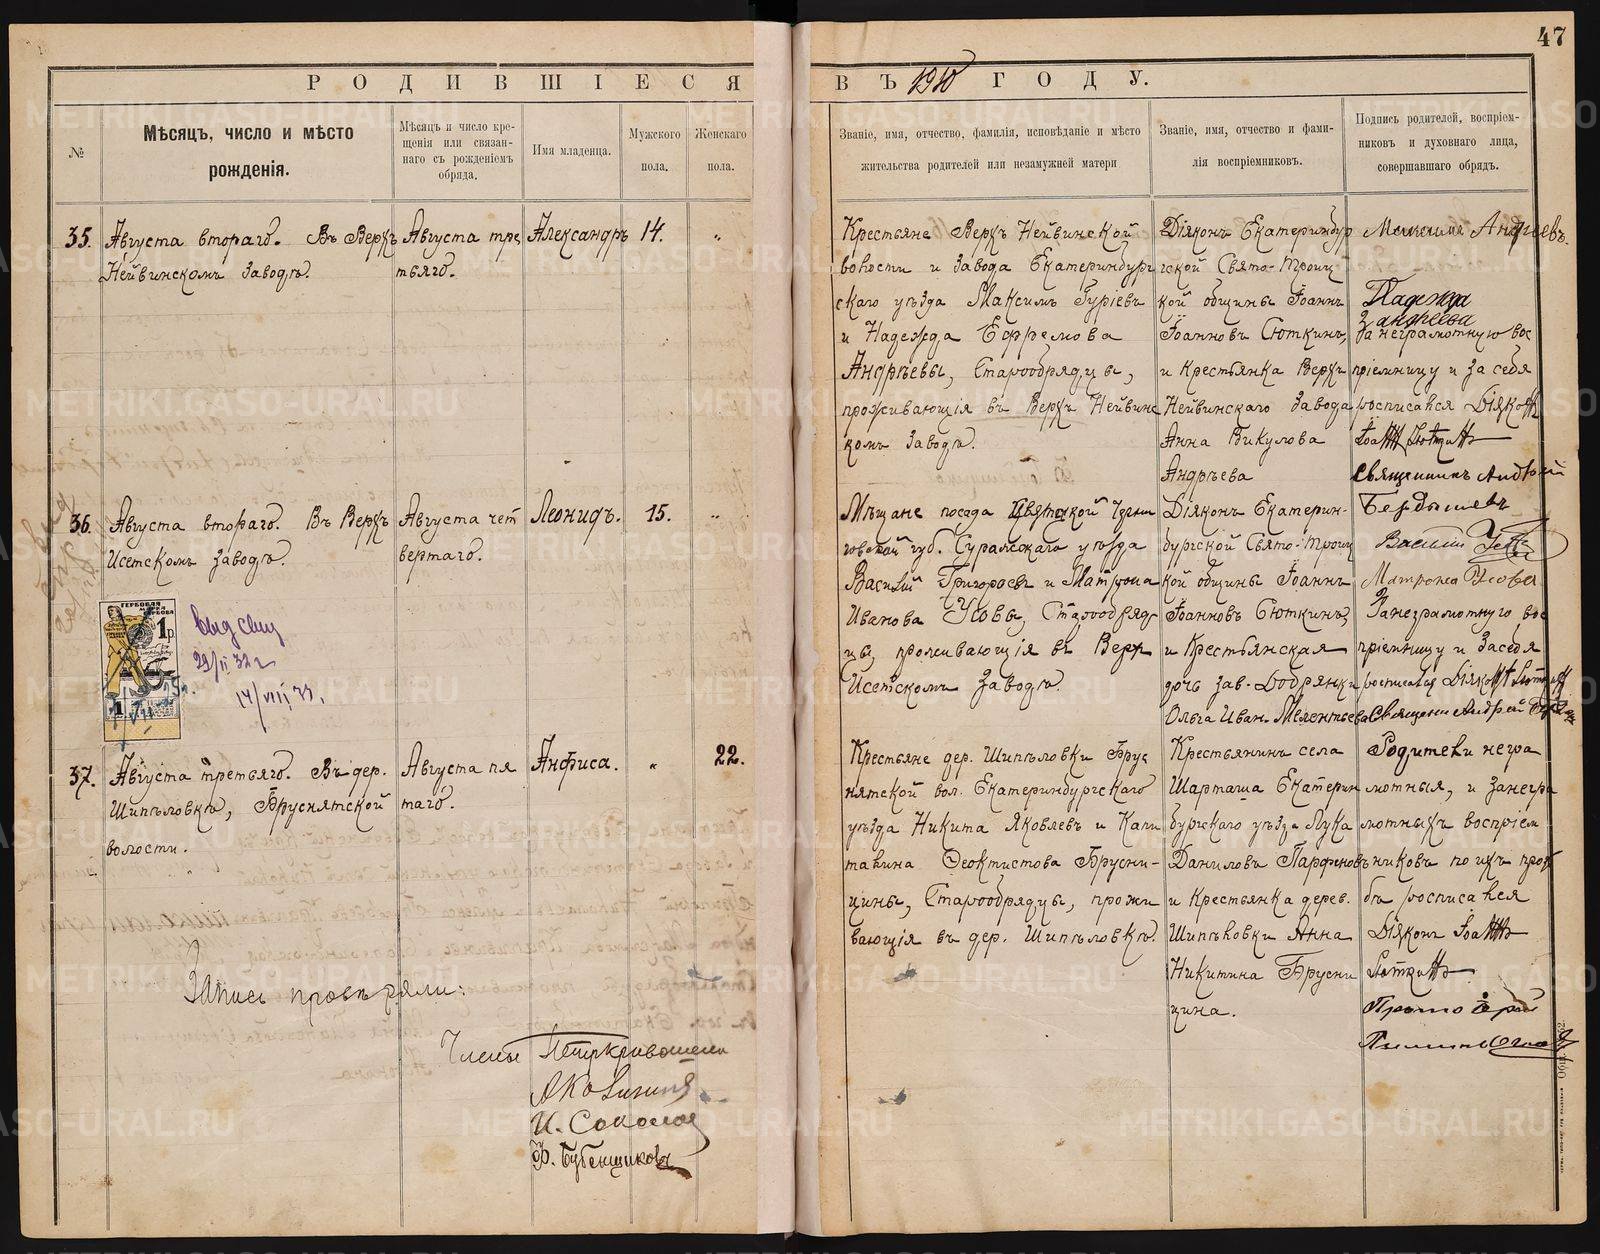 47
РОДИВШІЕСЯ ВЪ 1910 ГОДУ.
№
Мѣсяцъ, число и мѣсто рожденія.
Мѣсяцъ и число крещенія или связаннаго съ рожденіемъ обряда.
Имя младенца.
Мужского пола.
Женскаго пола.
Званіе, имя, отчество, фамилія, исповѣданіе и мѣсто жительства родителей или незамужней матери
Званіе, имя, отчество и фамилія воспріемниковъ.
Подпись родителей, воспріемниковъ и духовнаго лица, совершавшаго обрядъ.
35.
Августа втораго. Въ Верхъ
Нейвинскомъ заводѣ.
Августа тре
тьяго.
Александръ
14.
"
Крестьяне Верхъ Нейвинской
волости и завода Екатеринбург
скаго уѣзда Максимъ Гуріевъ
и Надежда Ефремова
Андрѣевы, Старообрядцы,
проживающія въ Верхъ Нейвинс
комъ заводѣ.
Діяконъ Екатеринбур
гской Свято-Троиц
кой общины Іоаннъ
Іоанновъ Сюткинъ,
и Крестьянка Верхъ
Нейвинскаго завода
Анна Викулова
Андрѣева
Максимъ Андреевъ.
Надежда
Андреева
За неграмотную вос
пріемницу и за себя
росписался Діяконъ
Іоаннъ Сюткинъ
Священникъ Андрей
Бердышевъ
36.
Августа втораго. Въ Верхъ
Исетскомъ заводѣ.
Августа чет
вертаго.
Леонидъ.
15.
"
Мѣщане посада Черни
говской губ. Суражскаго уѣзда
Василій Григорьевъ и Матрона
Иванова Усовы, Старообряд
цы, проживающія въ Верх
Исетскомъ заводѣ.
Діяконъ Екатерин-
бургской Свято-Троиц
кой общины Іоаннъ
Іоанновъ Сюткинъ,
и Крестьянская
дочь зав. Добрянки
Ольга Иван. Мелентьева
Василій
Матрона Усова
За неграмотную вос
пріемницу и за себя
росписался Діяконъ Сюткинъ
Священ Андрей
ГЕРБОВАЯ
МАРКА
1р
1
вид
29/II 32 г
14/VIII 33.
37.
Августа третьяго. Въ дер.
Шипѣловкѣ, Бруснятской
волости.
Августа пя
таго.
Анфиса.
"
22.
Крестьяне дер. Шипѣловки Брус
нятской вол. Екатеринбургскаго
уѣзда Никита Яковлевъ и Капи
талина Феоктистова Брусни-
цины, Старообрядцы, прожи
вающія въ дер. Шипѣловкѣ.
Крестьянинъ села
Шарташа Екатерин
бургскаго уѣзда Лука
Даниловъ Парфеновъ
и Крестьянка дерев.
Шипѣловки Анна
Никитина Брусни
цина.
Родители негра
мотныя, и за негра
мотныхъ воспріем
никовъ по ихъ прозь
бѣ росписался
Діяконъ Іоаннъ
Сюткинъ
Протоіерей
Запись провѣряли:
Члены
И. Соколов
Ф. Бубенщиковъ
METRIKI.GASO-URAL.RU